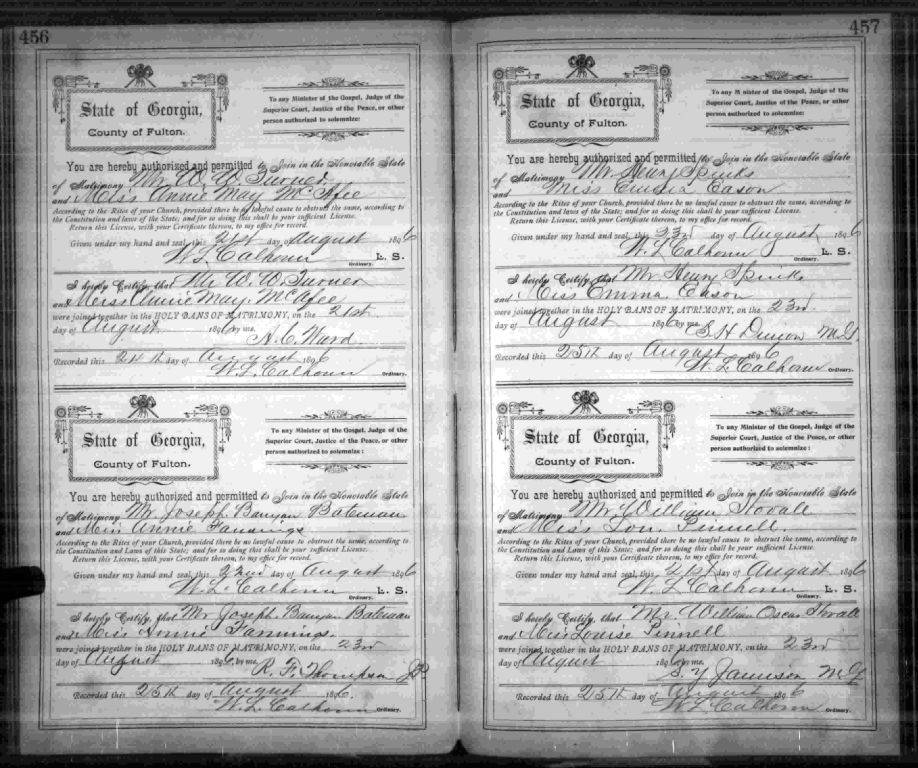 456
State of Georgia,
County of Fulton.
To any Minister of the Gospel, Judge of the
Superior Court, Justice of the Peace, or other
person authorized to solemnize:
You are hereby authorized and permitted to Join in the Honorable State
of Matrimony Mr W. W. Turner
and Miss Annie May McAfee
According to the Rites of your Church, provided there be no lawful cause to obstruct the same, according to
the Constitution and laws of this State; and for so doing this shall be your sufficient License.
Return this License, with your Certificate thereon, to my office for record.
Given under my hand and seal, this 21st day of August 1896
W. L. Calhoun L. S.
Ordinary.
I hereby Certify, that Mr W. W. Turner
and Miss Annie May McAfee
were joined together in the HOLY BANS OF MATRIMONY, on the 21st
day of August 1896 by me.
A. C. Ward
Recorded this 24th day of August 1896
W. L. Calhoun Ordinary.
State of Georgia,
County of Fulton.
To any Minister of the Gospel, Judge of the
Superior Court, Justice of the Peace, or other
person authorized to solemnize:
You are hereby authorized and permitted to Join in the Honorable State
of Matrimony Mr Joseph Bunyan Bateman
and Miss Annie Fannings
According to the Rites of your Church, provided there be no lawful cause to obstruct the same, according to
the Constitution and Laws of this State; and for so doing this shall be your sufficient License.
Return this License, with your Certificate thereon, to my office for record.
Given under my hand and seal, this 22nd day of August 1896
W. L. Calhoun L. S.
Ordinary.
I hereby Certify, that Mr Joseph Bunyan Bateman
and Miss Annie Fannings
were joined together in the HOLY BANS OF MATRIMONY, on the 23rd
day of August 1896 by me.
R. F. Thompson JP.
Recorded this 25th day of August 1896.
W. L. Calhoun Ordinary.
457
State of Georgia,
County of Fulton.
To any Minister of the Gospel, Judge of the
Superior Court, Justice of the Peace, or other
person authorized to solemnize:
You are hereby authorized and permitted to Join in the Honorable State
of Matrimony Mr Henry Spinks
and Miss Emma Eason
According to the Rites of your Church, provided there be no lawful cause to obstruct the same, according to
the Constitution and laws of this State; and for so doing this shall be your sufficient License.
Return this License, with your Certificate thereon, to my office for record.
Given under my hand and seal, this 23rd day of August 1896
W. L. Calhoun L. S.
Ordinary.
I hereby Certify, that Mr Henry Spinks
and Miss Emma Eason
were joined together in the HOLY BANS OF MATRIMONY, on the 23rd
day of August 1896 by me.
S H M.G.
Recorded this 25th day of August 1896
W. L. Calhoun Ordinary.
State of Georgia,
County of Fulton.
To any Minister of the Gospel, Judge of the
Superior Court, Justice of the Peace, or other
person authorized to solemnize:
You are hereby authorized and permitted to Join in the Honorable State
of Matrimony Mr William Stovall
and Miss Lou Pinnell
According to the Rites of your Church, provided there be no lawful cause to obstruct the same, according to
the Constitution and Laws of this State; and for so doing this shall be your sufficient License.
Return this License, with your Certificate thereon, to my office for record.
Given under my hand and seal, this 21st day of August 1896
W. L. Calhoun L. S.
Ordinary.
I hereby Certify, that Mr William Oscar Stovall
and Miss Louise Pinnell
were joined together in the HOLY BANS OF MATRIMONY, on the 23rd
day of August 1896 by me.
S. Y. Jamison M.G
Recorded this 25th day of August 1896
W. L. Calhoun Ordinary.